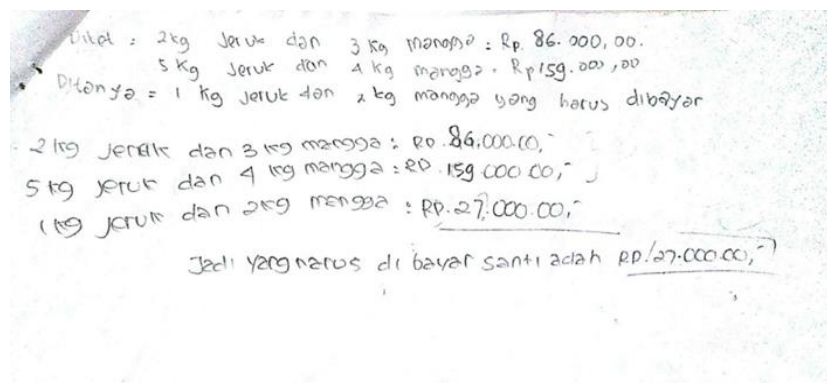 Diket : 2kg Jeruk dan 3 Kg mangga : Rp. 86.000,00.
5 Kg Jeruk dan 4 Kg mangga . Rp159.000,00
Ditanya = 1 Kg Jeruk dan 2 kg mangga yang harus dibayar
2 kg Jeruk dan 3 kg mangga : RP. 86.000.00,-
5 kg Jeruk dan 4 kg mangga : RP 159 000 00,-
1 kg Jeruk dan 2kg mangga : RP. 27.000.00,-
Jadi yang harus di bayar santi adah RP. 27.000.00,-